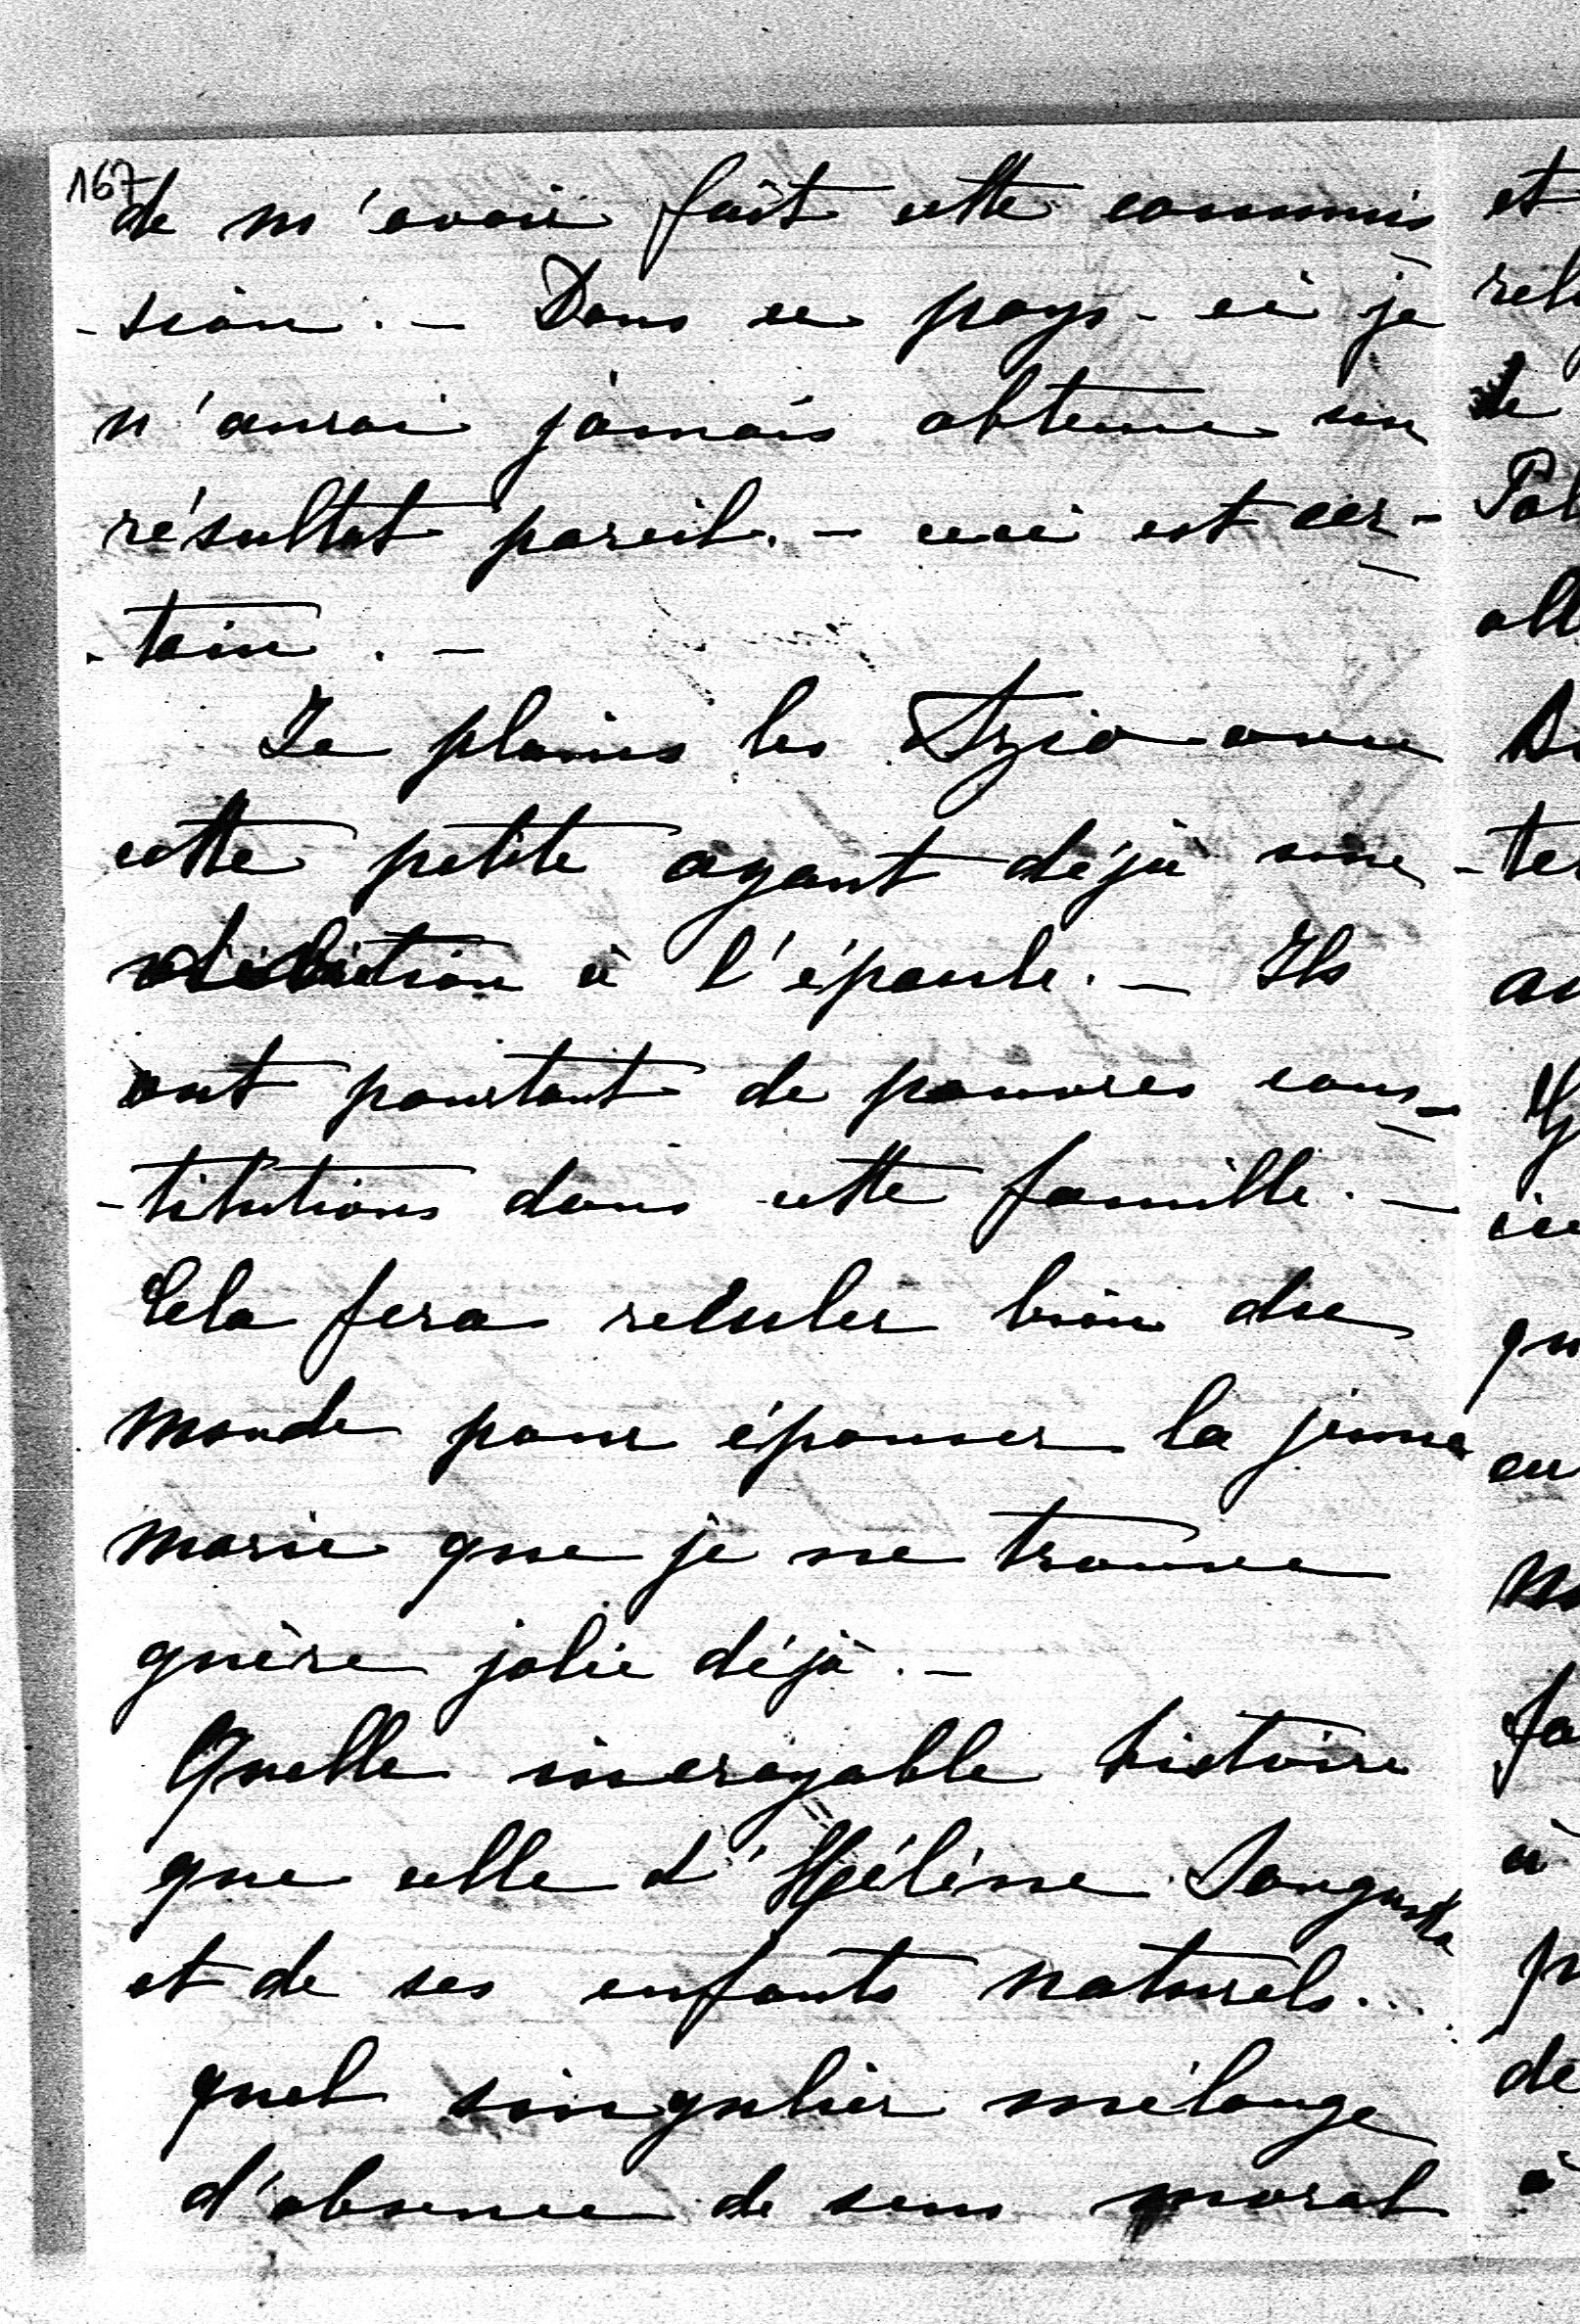 167
de m'avoir fait cette commis
-sion. — Dans ce pays-ci je
n'aurai jamais obtenu un
résultat pareil. — ceci est cer-
-tain. —
Je plains les Azio avec
cette petite ayant déjà une
à l'épaule. — Ils
ont pourtant de pauvres cons-
-titutions dans cette famille. —
Cela fera reculer bien du
monde pour épouser la jeune
Marie que je ne trouve
guère jolie déjà. —
Quelle incroyable histoire
que celle d'Hélène Sanguska
et de ses enfants naturels...
quel singulier mélange
d'absence de sens moral